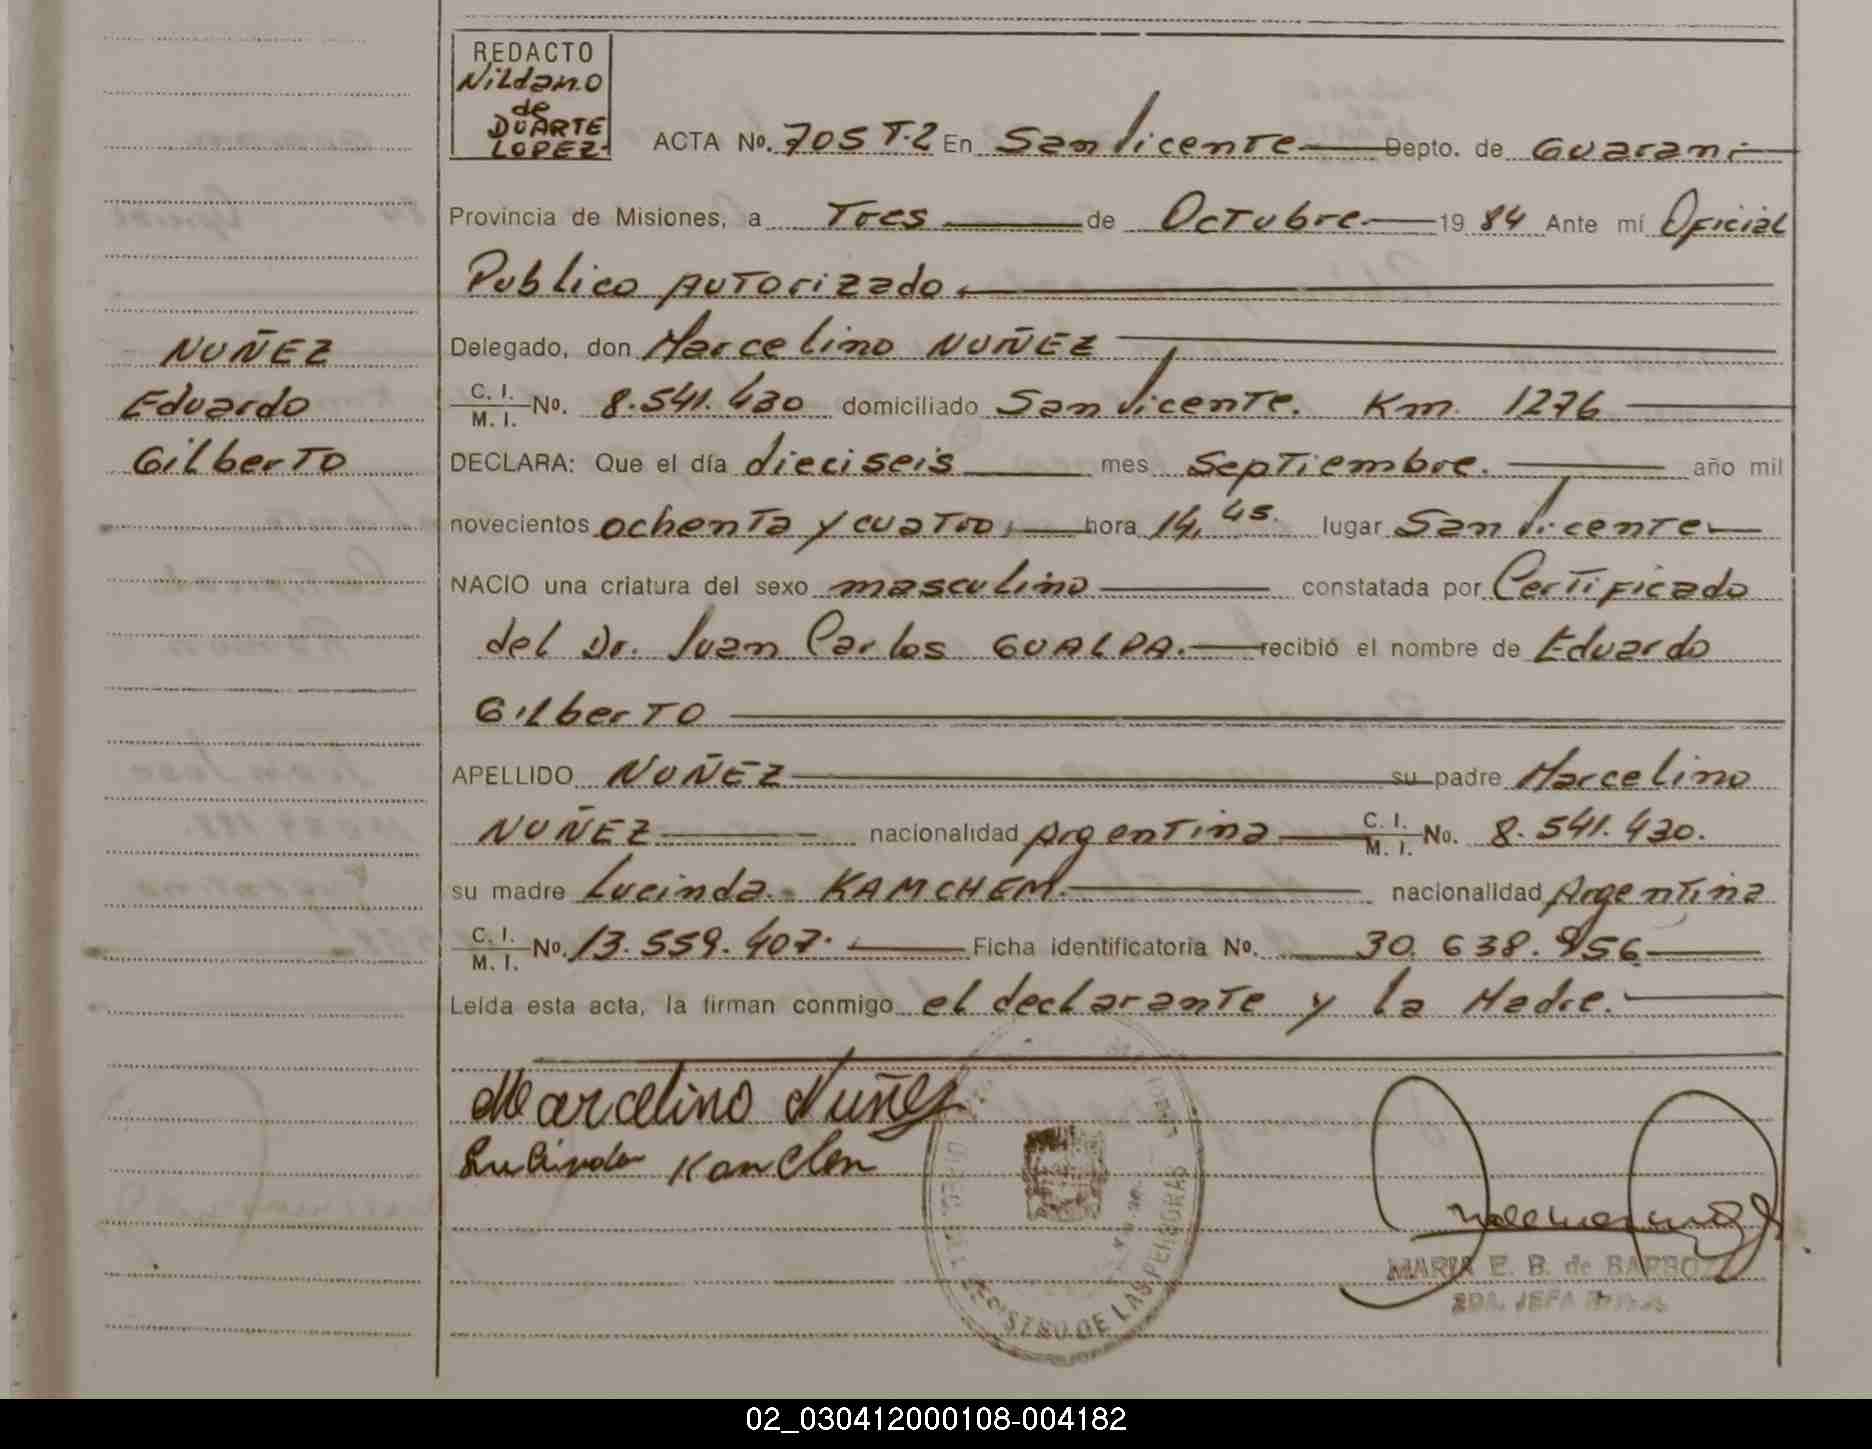 REDACTO
Nildan.O
de
DUARTE
LOPEZ.
ACTA No. 705 T.2 En San Vicente Depto. de Guarani
Provincia de Misiones, a Tres de Octubre 19 84 Ante mí Oficial
Publico autorizado.
NUÑEZ
Delegado, don Marcelino NUÑEZ
Eduardo
C. I.
M. I. No. 8.541.430 domiciliado San Vicente. Km. 1276
Gilberto
DECLARA: Que el día dieciseis mes Septiembre. año mil
novecientos ochenta y cuatro, hora 14,45. lugar San Vicente
NACIO una criatura del sexo masculino constatada por Certificado
del Dr. Juan Carlos GUALPA. recibió el nombre de Eduardo
Gilberto
APELLIDO NUÑEZ su padre Marcelino
NUÑEZ nacionalidad Argentina C. I.
M. I. No. 8.541.430.
su madre Lucinda. KAMCHEM. nacionalidad Argentina
C. I.
M. I. No. 13.559.407. Ficha identificatoria No. 30.638.956
Leída esta acta, la firman conmigo el declarante y la Madre.
Marcelino Nuñez
REGISTRO DE LAS PERSONAS
MARIA E. B. de BARBOZA
2DA. JEFA
02_030412000108-004182